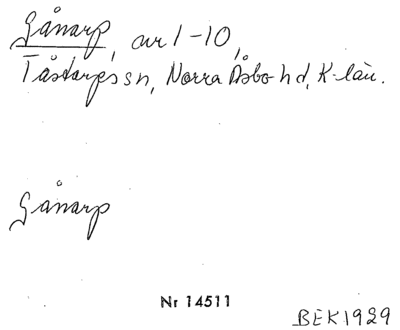 Gånarp, nr 1-10,
Tåstarps sn, Norra Åsbo hd, K-län.
Gånarp
Nr 14511
BEK1929